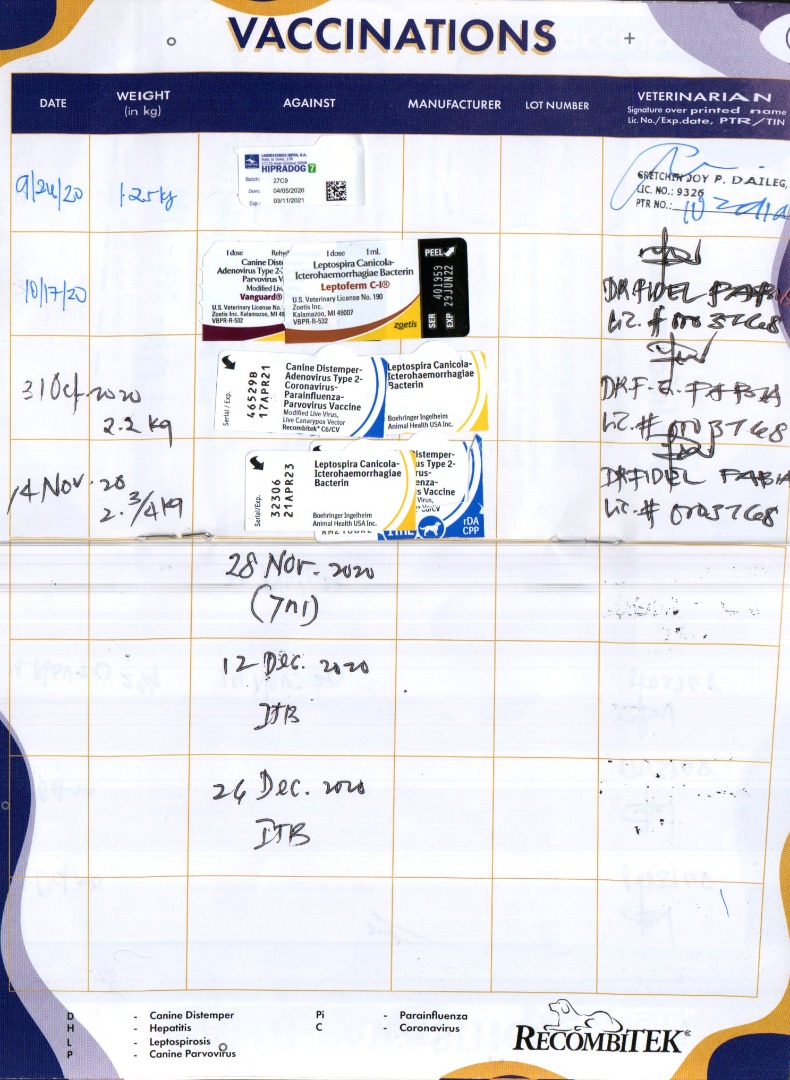 VACCINATIONS
DATE
WEIGHT
(in kg)
AGAINST
MANUFACTURER
LOT NUMBER
VETERINARIAN
Signature over printed name
Lic. No./Exp.date, PTR/TIN
9/26/20
1.25kg
LABORATORIOS HIPRA, S.A.
HIPRADOG 7
Batch: 27C9
Dom: 04/05/2020
Exp.: 03/11/2021
GRETCHEN JOY P. DAILEG,
LIC. NO.: 9326
PTR NO.:
10/17/20
1 dose
Canine Diste
Adenovirus Type 2-
Parvovirus V
Modified Liv
Vanguard®
U.S. Veterinary License No.
Zoetis Inc.
Kalamazoo, MI 49
VBPR-R-532
1 dose 1 mL
Leptospira Canicola-
Icterohaemorrhagiae Bacterin
Leptoferm C-I®
U.S. Veterinary License No. 190
Zoetis Inc.
Kalamazoo, MI 49007
VBPR-R-532
zoetis
PEEL
SER 401959
EXP 29JUN22
DR FIDEL FABIA
Lic. # 0003768
31 Oct. 2020
2.2 kg
Serial / Exp.
46529B
17APR21
Canine Distemper-
Adenovirus Type 2-
Coronavirus-
Parainfluenza-
Parvovirus Vaccine
Modified Live Virus,
Live Canarypox Vector
Recombitek® C6/CV
Leptospira Canicola-
Icterohaemorrhagiae
Bacterin
Boehringer Ingelheim
Animal Health USA Inc.
DR F. Q. FABIA
Lic. # 0003768
14 Nov. 20
2. 3/4 kg
Serial/Exp.
32306
21APR23
Leptospira Canicola-
Icterohaemorrhagiae
Bacterin
Boehringer Ingelheim
Animal Health USA Inc.
istemper-
us Type 2-
rus-
enza-
s Vaccine
Virus,
1 mL
rDA
CPP
DR FIDEL FABIA
Lic. # 0003768
28 Nov. 2020
(7n1)
12 Dec. 2020
DTB
26 Dec. 2020
DTB
D - Canine Distemper
H - Hepatitis
L - Leptospirosis
P - Canine Parvovirus
Pi - Parainfluenza
C - Coronavirus
RECOMBITEK®